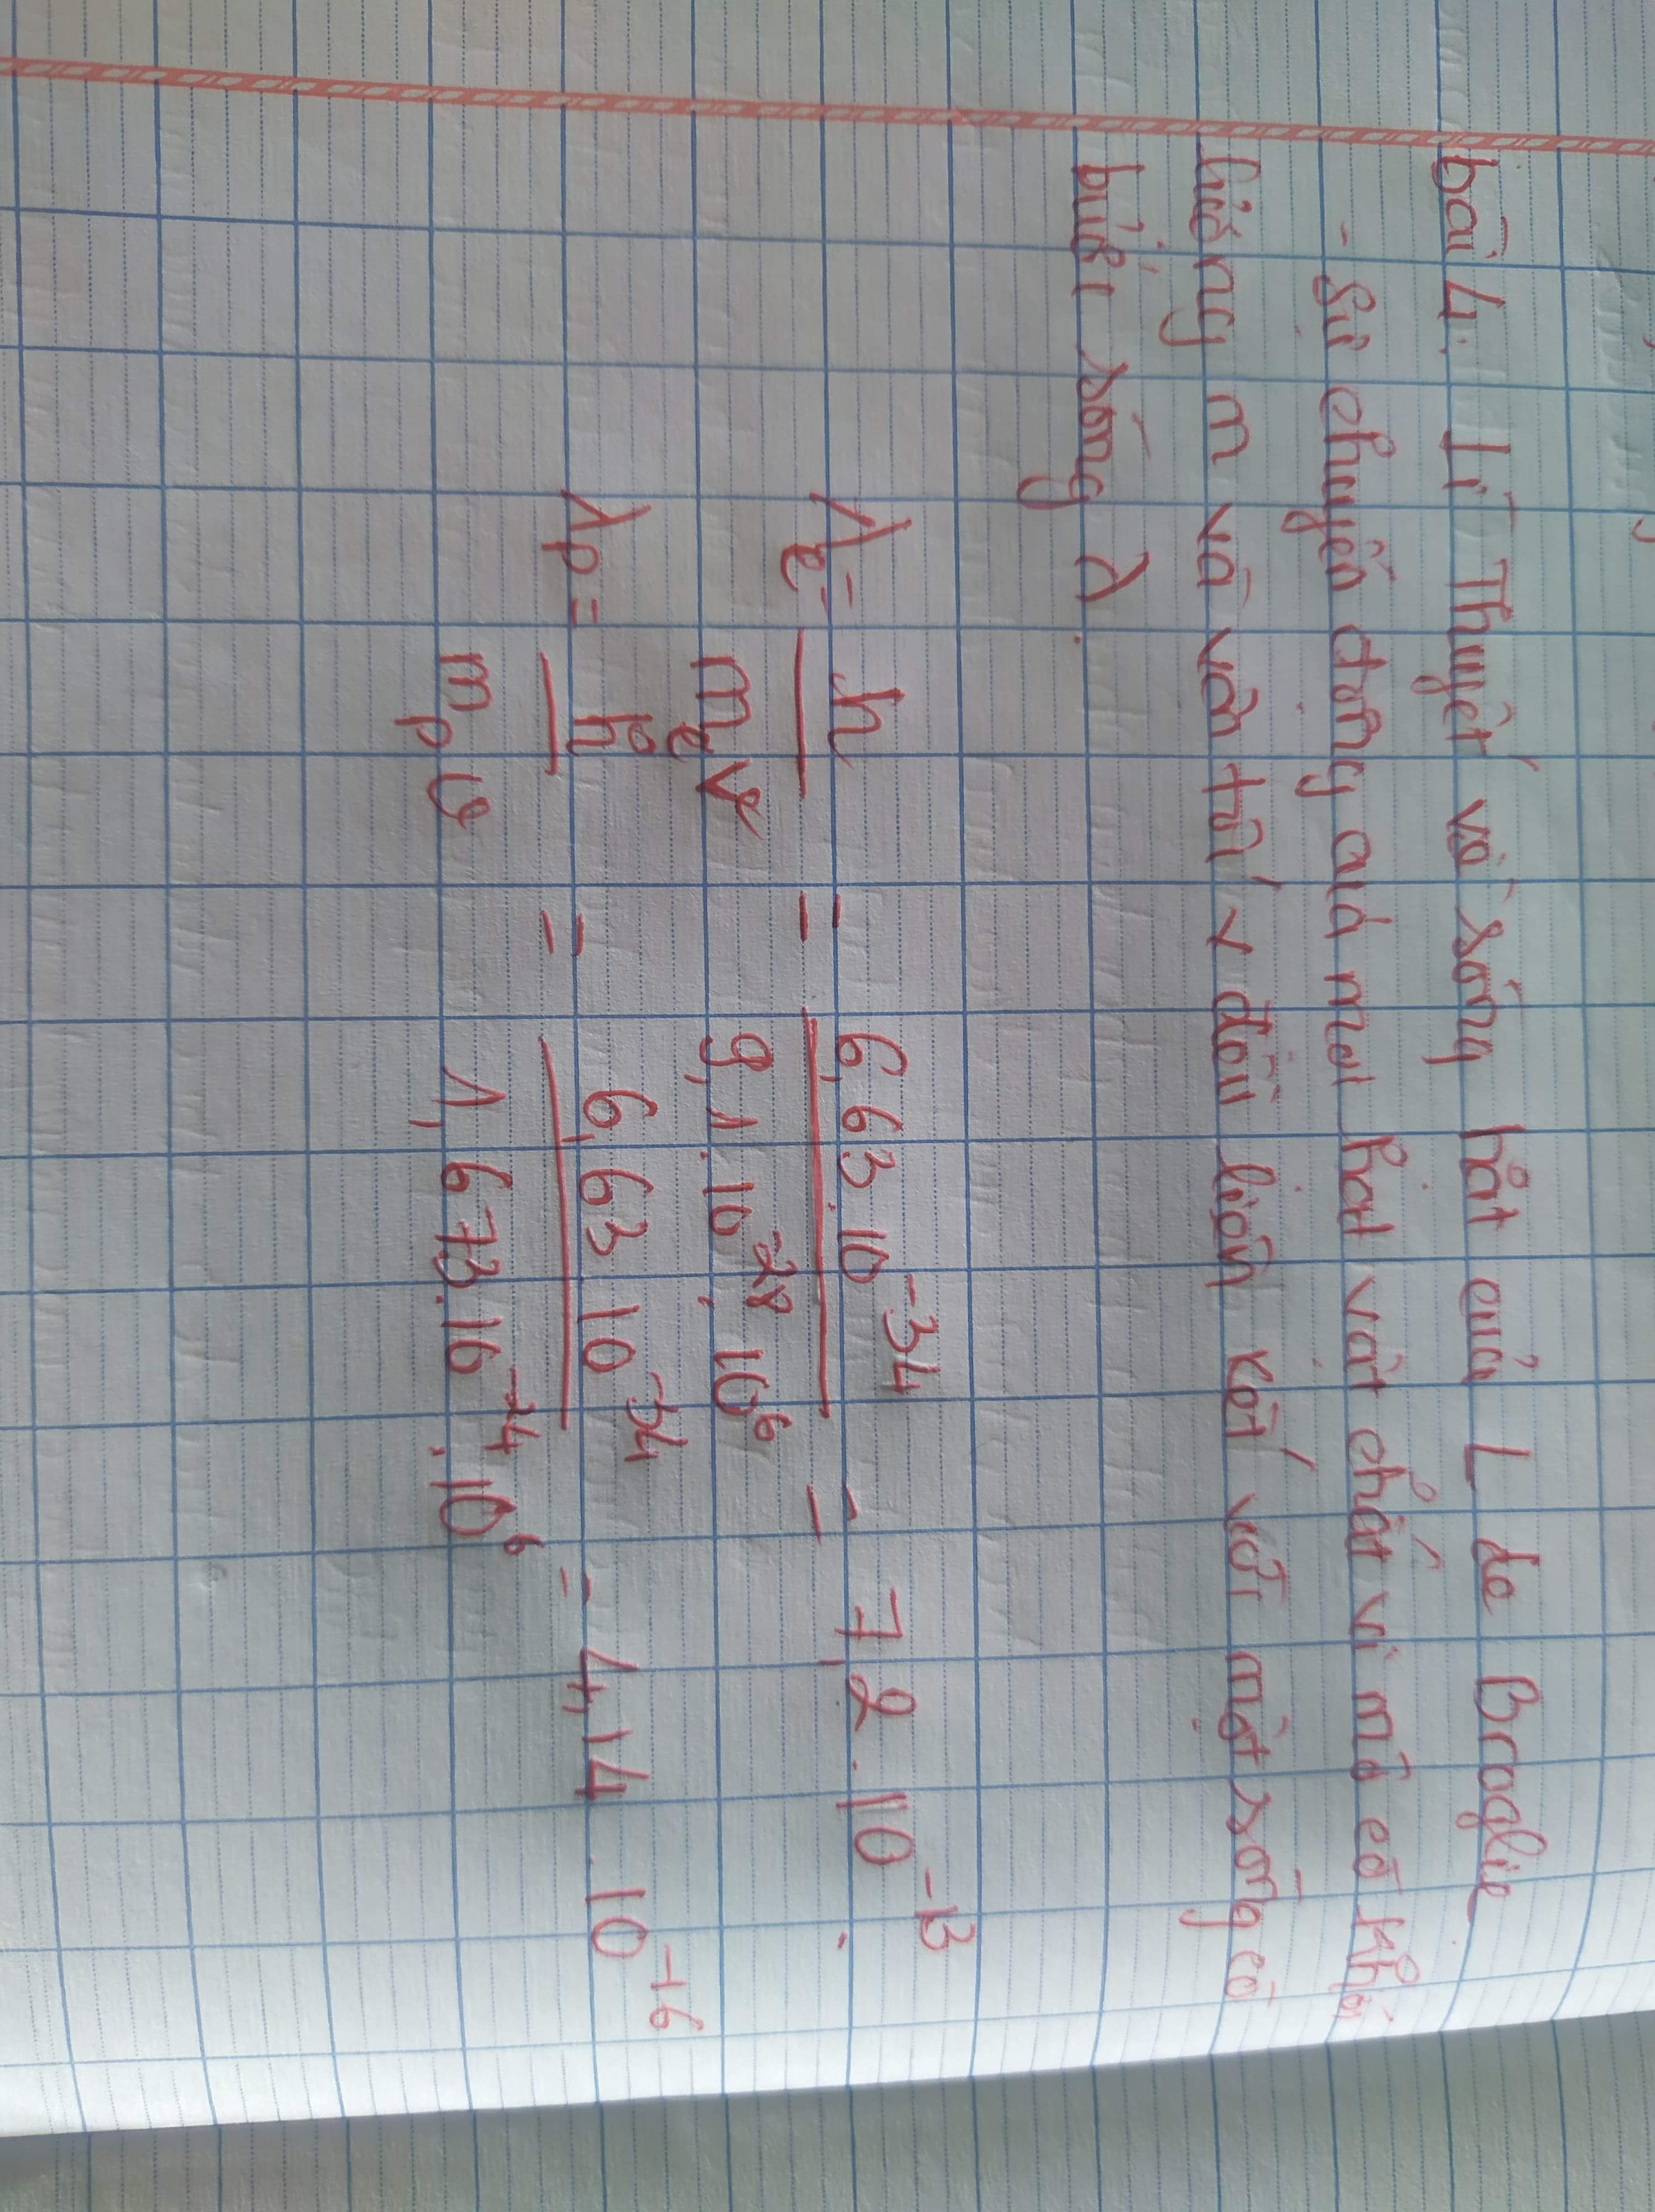 bài 4. Lí Thuyết về sóng hạt của L de Broglie
- Sự chuyển động của mọi hạt vật chất vi mô có khối
lượng m và vận tốc v đều liên kết với một sóng có
bước sóng λ.
λe = h / me ve = 6,63.10^-34 / 9,1.10^-28.10^6 = 7,2.10^-13.
λp = h / mp vp = 6,63 10^-34 / 1,673.10^-24.10^6 = 4,14.10^-16